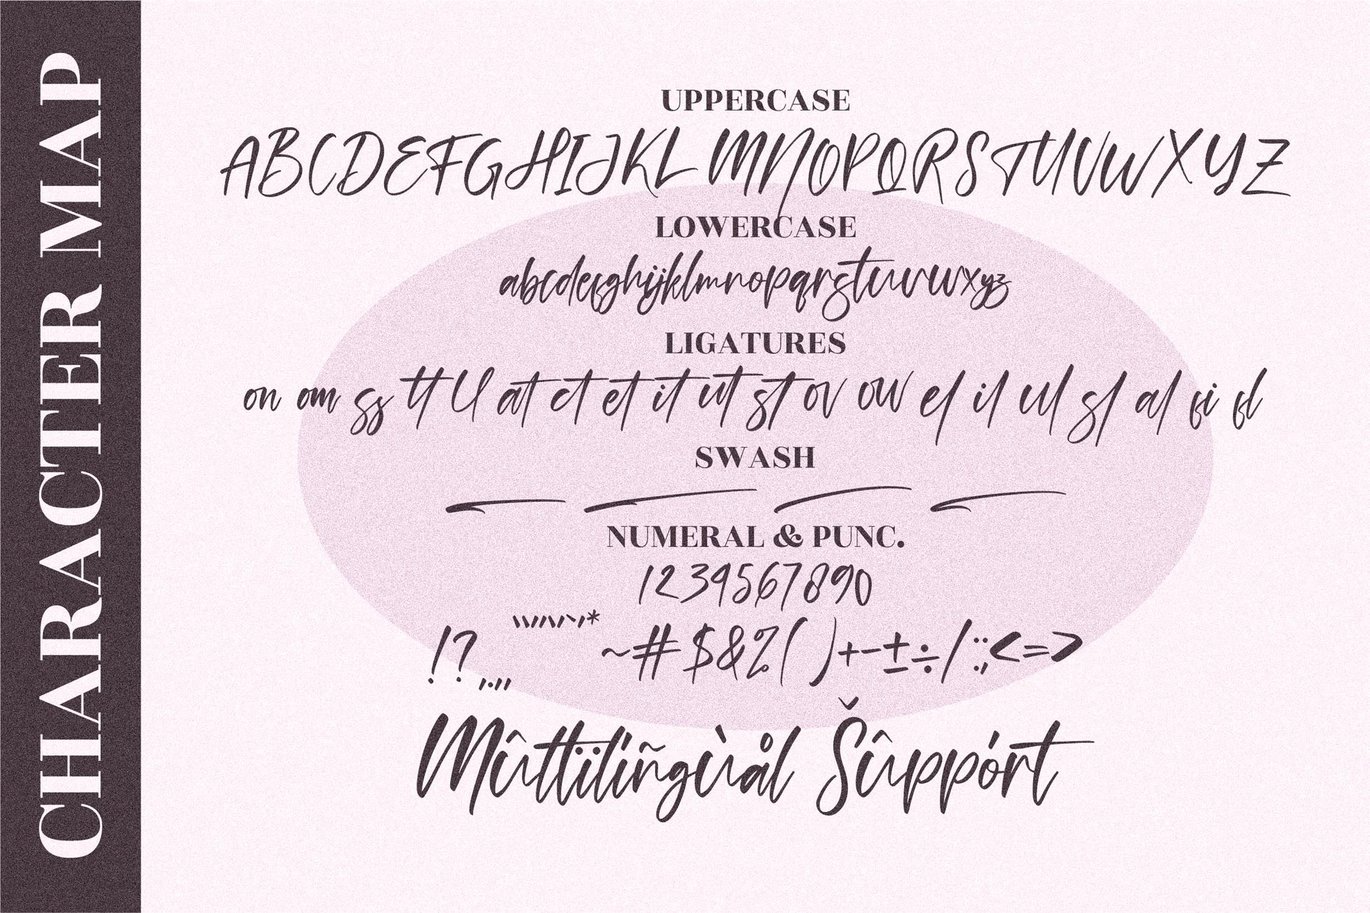 CHARACTER MAP
UPPERCASE
ABCDEFGHIJKLMNOPQRSTUVWXYZ
LOWERCASE
abcdefghijklmnopqrstuvwxyz
LIGATURES
on om ss tt ll at ct et it ut st ov ow el il ul sl al fi fl
SWASH
NUMERAL & PUNC.
1234567890
!?.,„ ~#$&%()+-±÷/:;<=>
Mûltïlíñgùål Šûppórt